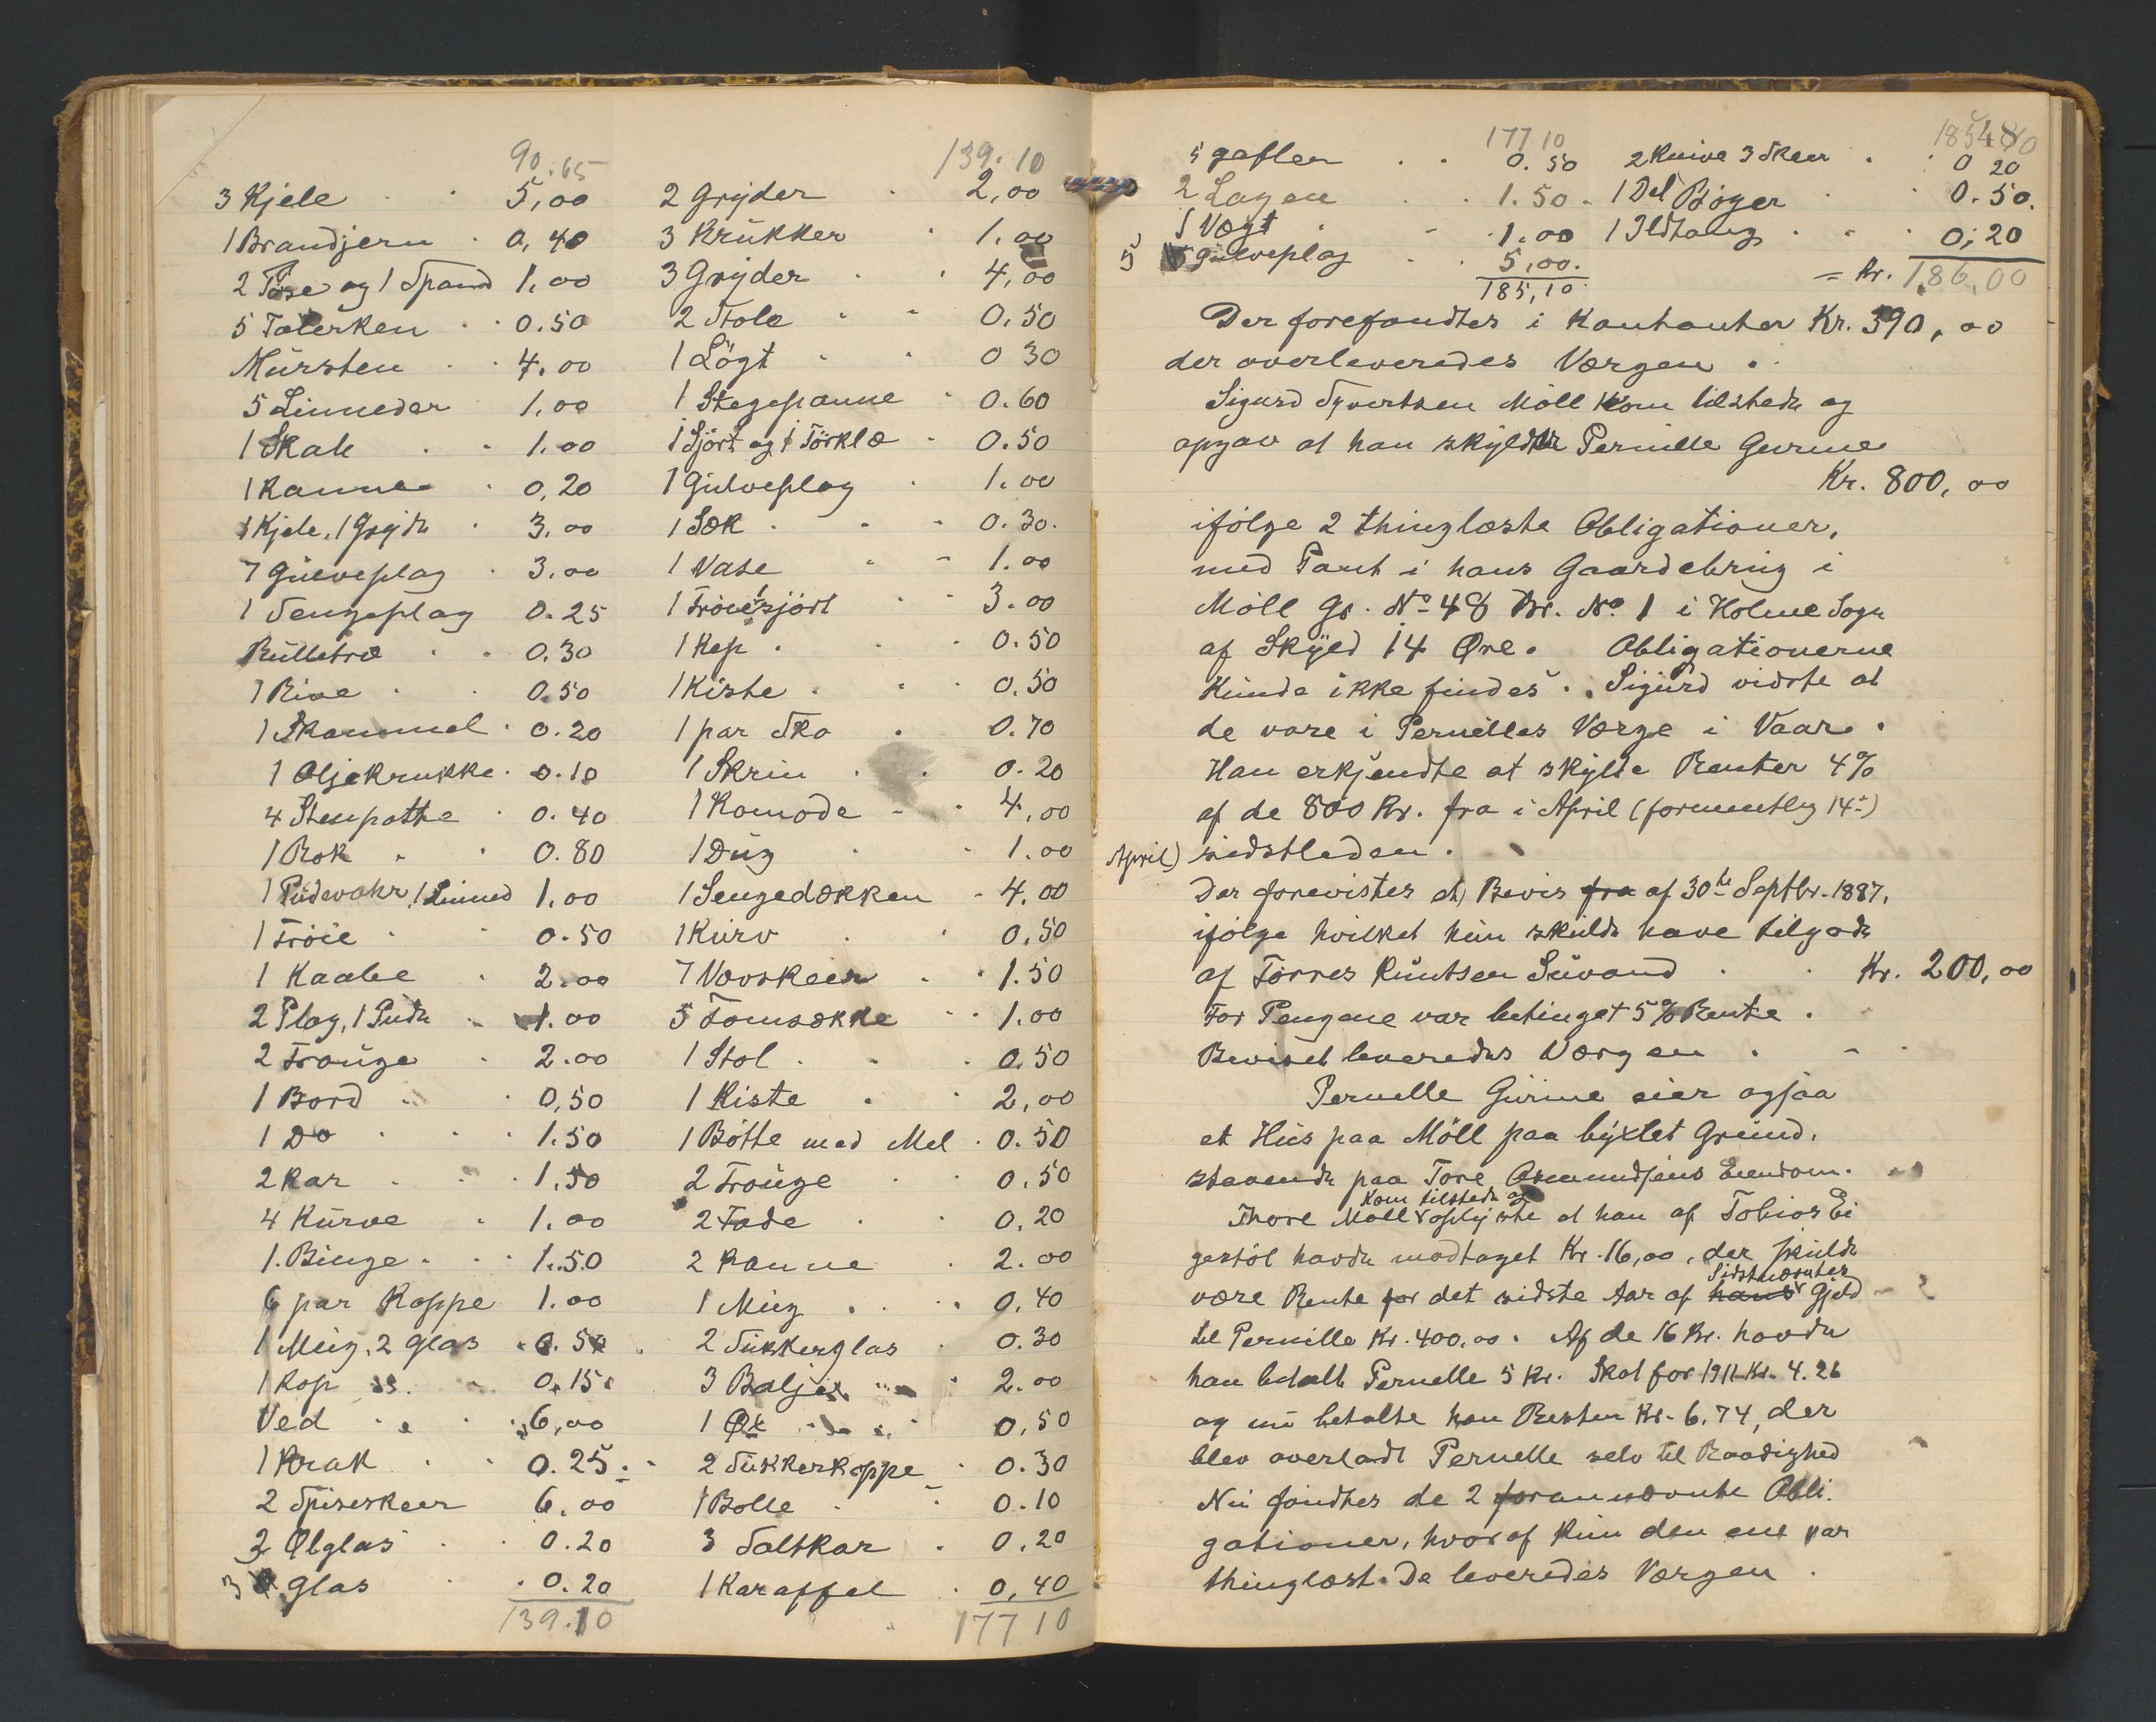 90.65
3 Kjele 5,00
1 Brandjern 0,40
2 Tøse og 1 Spand 1,00
5 Talerken 0.50
Mursten 4.00
5 Linneder 1,00
1 Skaal 1.00
1 Kanne 0,20
1 Kjele, 1 Gryde 3,00
7 Gulveplag 3.00
1 Sengeplag 0.25
Rulletræ 0.30
1 Rive 0.50
1 Skammel 0.20
1 Oljekrukke 0.10
4 Stenpotte 0.40
1 Rok 0.80
1 Pudevahr, 1 Linned 1,00
1 Trøie 0.50
1 Kaabe 2.00
2 Plag, 1 Pude 1.00
2 Trouge 2.00
1 Bord 0,50
1 Do 1.50
2 Kar 1,50
4 Kurve 1.00
1. Binge 1.50
6 par Koppe 1.00
1 Mug, 2 glas 0.50
1 Kop 0.15
Ved 6,00
1 Krak 0.25
2 Spiseskeer 6.00
2 Ølglas 0.20
3 glas 0.20
139.10
139.10
2 Gryder 2,00
3 Krukker 1.00
3 Gryder 4,00
2 Stole 0.50
1 Løgt 0 30
1 Stegepanne 0.60
1 Sjørt og 1 Tørklæ 0.50
1 Gulveplag 1.00
1 Sæk 0.30.
1 Vase 1.00
1 Trøie 1 sjørt 3.00
1 Kop 0.50
1 Kiste 0.50
1 par Sko 0.70
1 Skrin 0.20
1 Komode 4,00
1 Dug 1.00
1 Sengedækken 4.00
1 Kurv 0,50
7 Vovskeer 1.50
5 Tomsække 1.00
1 Stol 0.50
1 Kiste 2,00
1 Bøtte med Mel 0.50
2 Trouge 0.50
2 Fade 0,20
2 Kanne 2.00
1 Mug 0,40
2 Sukkerglas 0.30
3 Baljer 2.00
1 Øx 0,50
2 Sukkerkoppe 0.30
1 Bolle 0.10
3 Saltkar 0,20
1 Karaffel 0,40
177 10
177 10
5 gafler 0.50
2 Lagen 1.50
1 Vægt 1.00
5 Gulveplag 5,00.
185,10
2 Knive 3 Skeer 0 20
1 Del Bøger 0.50.
1 Ildtang 0,20
= Kr. 186,00
Der forefandtes i Kontanter Kr. 390,00
der overleveredes Værgen.
Sigurd Syvertsen Møll kom tilstede og
opgav at han skyldte Pernille Gurine
Kr. 800,00
ifølge 2 thinglæste Obligationer,
med Pant i hans Gaardebrug i
Møll Gr. No 48 Br. No 1 i Holme Sogn
af Skyld 14 Øre. Obligationerne
kunde ikke findes. Sigurd vidste at
de vare i Pernilles Værge i Vaar.
Han erkjendte at skylde Renter 4%
af de 800 Kr. fra i April (formentlig 14de
April) sidstleden.
Der forevistes et Bevis fra af 30te Septbr. 1887,
ifølge hvilket hun skulde have tilgode
af Tørres Knutsen Kr. 200,00
For Pengene var betinget 5% Rente.
Beviset leveredes Værgen.
Pernelle Gurine eier ogsaa
et Hus paa Møll paa byxlet Grund,
staaende paa Tore Osmundsens Eiendom.
kom tilstede og
Thore Møll oplyste at han af Tobias Ei
gestøl havde modtaget Kr. 16,00, der skulde
Sidstnævntes
være Rente for det sidste Aar af hans Gjeld
til Pernille Kr. 400.00. Af de 16 Kr. havde
han betalt Pernelle 5 Kr. Skat for 1911 Kr. 4.26
og nu betalte han Resten Kr. 6,74, der
blev overladt Pernelle selv til Raadighed
Nu fandtes de 2 forannævnte Obli-
gationer, hvoraf kun den ene var
thinglæst. De leveredes Værgen.